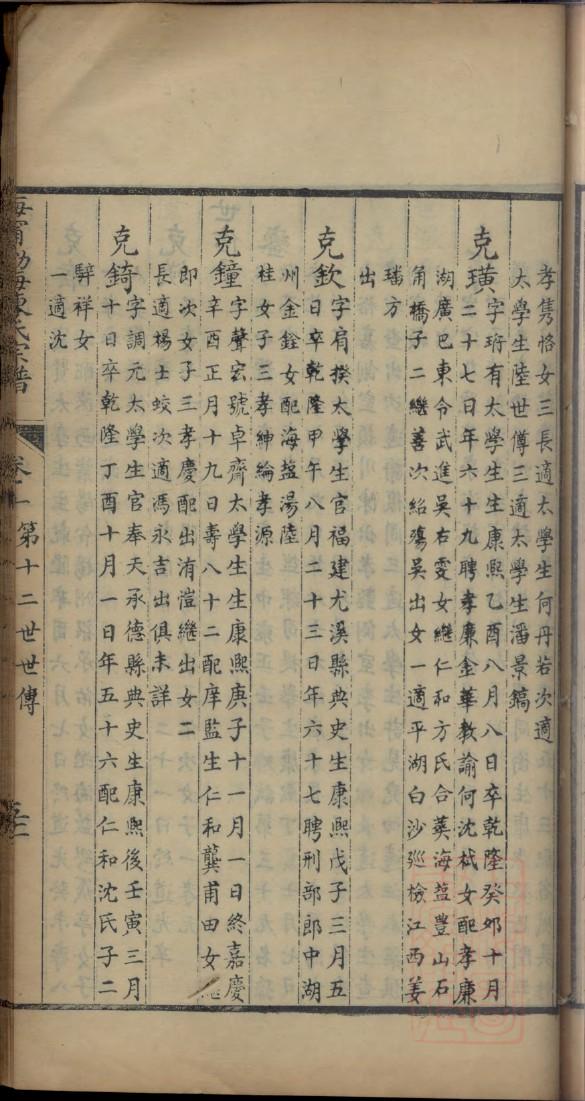 孝雋恪女三長適太學生何丹若次適
太學生陸世傅三適太學生潘景鎬
克璜
字珩有太學生生康熙乙酉八月八日卒乾隆癸卯十月
二十七日年六十九聘孝廉金華教諭何沈栻女配孝廉
湖廣巴東令武進吳右雯女繼仁和方氏合葬海盐豐山石
角橋子二繼善次紹殤吳出女一適平湖白沙巡檢江西姜
璠方
出
克欽
字肩揆太學生官福建尤溪縣典史生康熙戊子三月五
日卒乾隆甲午八月二十三日年六十七聘刑部郎中湖
州金銓女配海盐湯陸
桂女子三孝紳綸孝源
克鐘
字聲宏號卓齊太學生生康熙庚子十一月一日終嘉慶
辛酉正月十九日壽八十二配庠監生仁和龔甫田女繼
即次女子三孝慶配出洧愷繼出女二
長適楊士蛟次適馮永吉出俱未詳
克錡
字調元太學生官奉天承德縣典史生康熙後壬寅三月
十日卒乾隆丁酉十月一日年五十六配仁和沈氏子二
騂祥女
一適沈
海甯渤海陳氏宗譜
卷十一 第十二世世傳